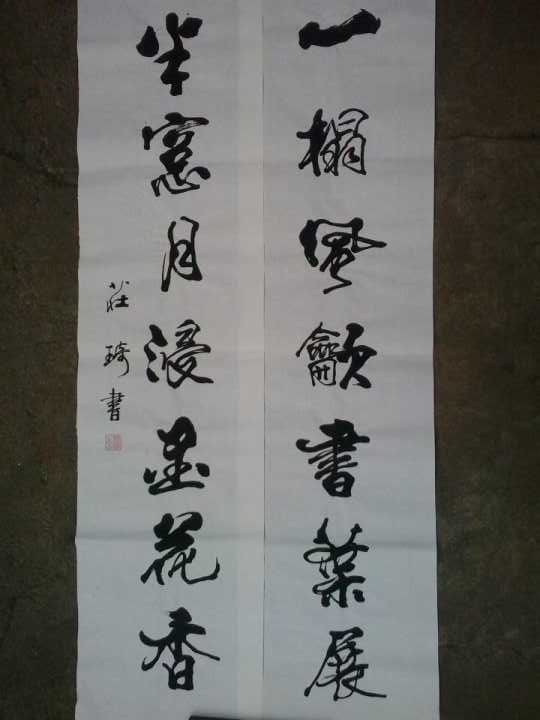 一榻風龡書葉展
半窻月浸墨花香
莊琦書